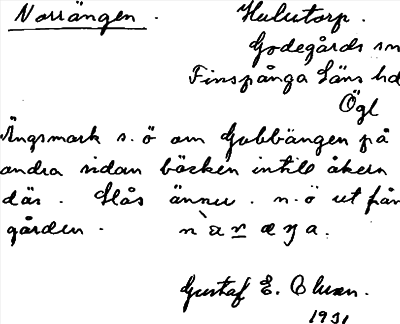 Norrängen. Hulutorp.
Godegårds sn
Finspånga Läns hd
Ögl
Ängsmark s.ö om Gubbängen på
andra sidan bäcken intill åkern
där. Slås ännu. n.ö ut från
gården. n`aʀæŋa.
Gustaf E. Cluxn.
1931